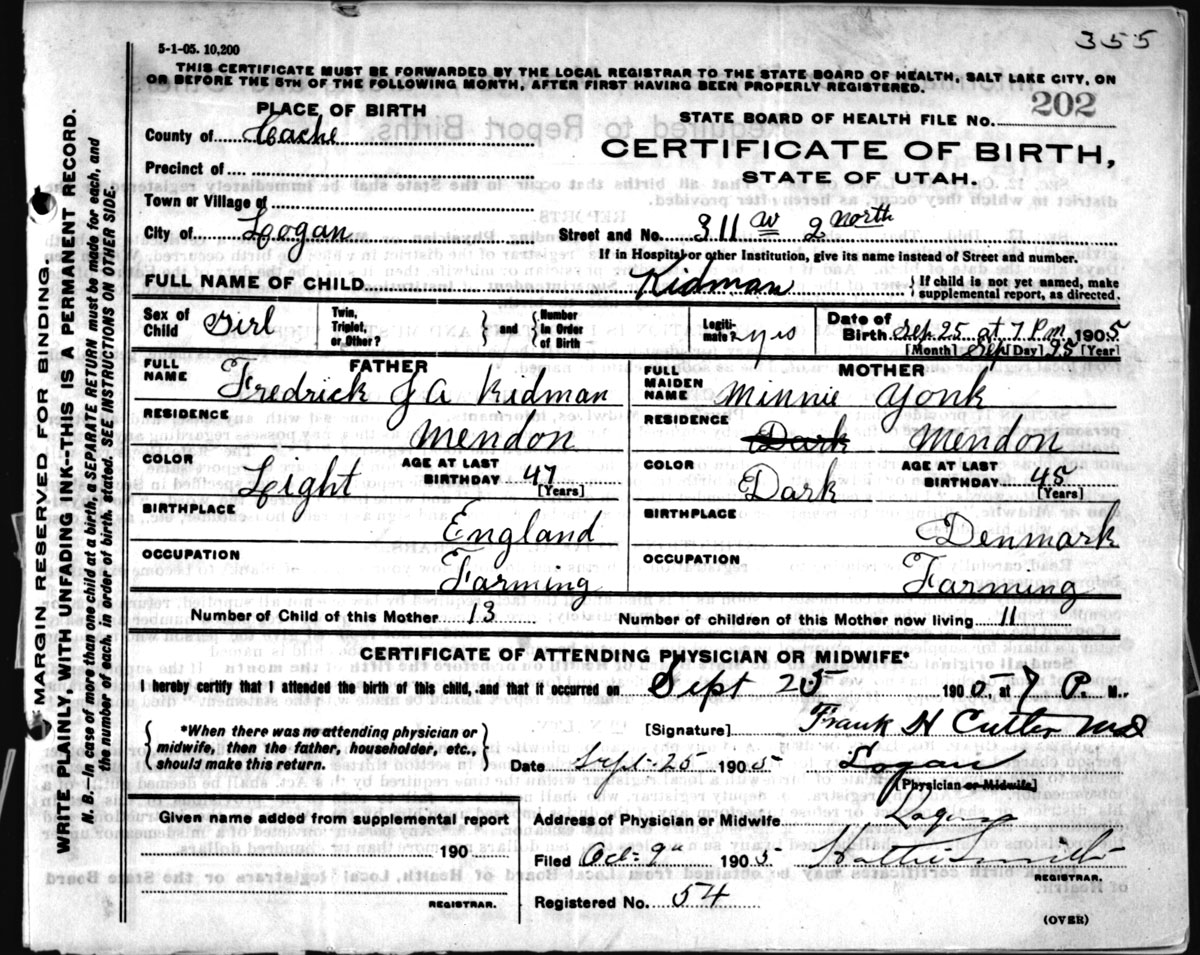 355
5-1-05. 10,200
THIS CERTIFICATE MUST BE FORWARDED BY THE LOCAL REGISTRAR TO THE STATE BOARD OF HEALTH, SALT LAKE CITY, ON
OR BEFORE THE 5TH OF THE FOLLOWING MONTH, AFTER FIRST HAVING BEEN PROPERLY REGISTERED.
PLACE OF BIRTH
STATE BOARD OF HEALTH FILE NO. 202
County of Cache
CERTIFICATE OF BIRTH,
Precinct of
STATE OF UTAH.
Town or Village of
City of Logan Street and No. 311 W 2 north
If in Hospital or other Institution, give its name instead of Street and number.
FULL NAME OF CHILD Kidman { If child is not yet named, make
supplemental report, as directed.
Sex of Child Girl Twin, Triplet, or Other? } and { Number in Order of Birth Legiti-mate yes Date of Birth Sep 25 at 7 P.m. 1905
[Month] Sep [Day] 25 [Year]
FATHER
FULL NAME Fredrick J A Kidman
RESIDENCE
Mendon
COLOR Light AGE AT LAST BIRTHDAY 47
[Years]
BIRTHPLACE
England
OCCUPATION
Farming
MOTHER
FULL MAIDEN NAME Minnie Yonk
RESIDENCE
Dark Mendon
COLOR Dark AGE AT LAST BIRTHDAY 45
[Years]
BIRTHPLACE
Denmark
OCCUPATION
Farming
Number of Child of this Mother 13 Number of children of this Mother now living 11
CERTIFICATE OF ATTENDING PHYSICIAN OR MIDWIFE*
I hereby certify that I attended the birth of this child, and that it occurred on Sept 25 1905, at 7 P. M.
*When there was no attending physician or
midwife, then the father, householder, etc.,
should make this return.
[Signature] Frank H Cutler MD
Date Sept. 25 1905 Logan
[Physician or Midwife]
Given name added from supplemental report
190
REGISTRAR.
Address of Physician or Midwife Logan
Filed Oct. 9" 1905 Hattie Smith
REGISTRAR.
Registered No. 54
(OVER)
MARGIN RESERVED FOR BINDING.
WRITE PLAINLY, WITH UNFADING INK--THIS IS A PERMANENT RECORD.
N. B.--In case of more than one child at a birth, a SEPARATE RETURN must be made for each, and
the number of each, in order of birth, stated. SEE INSTRUCTIONS ON OTHER SIDE.